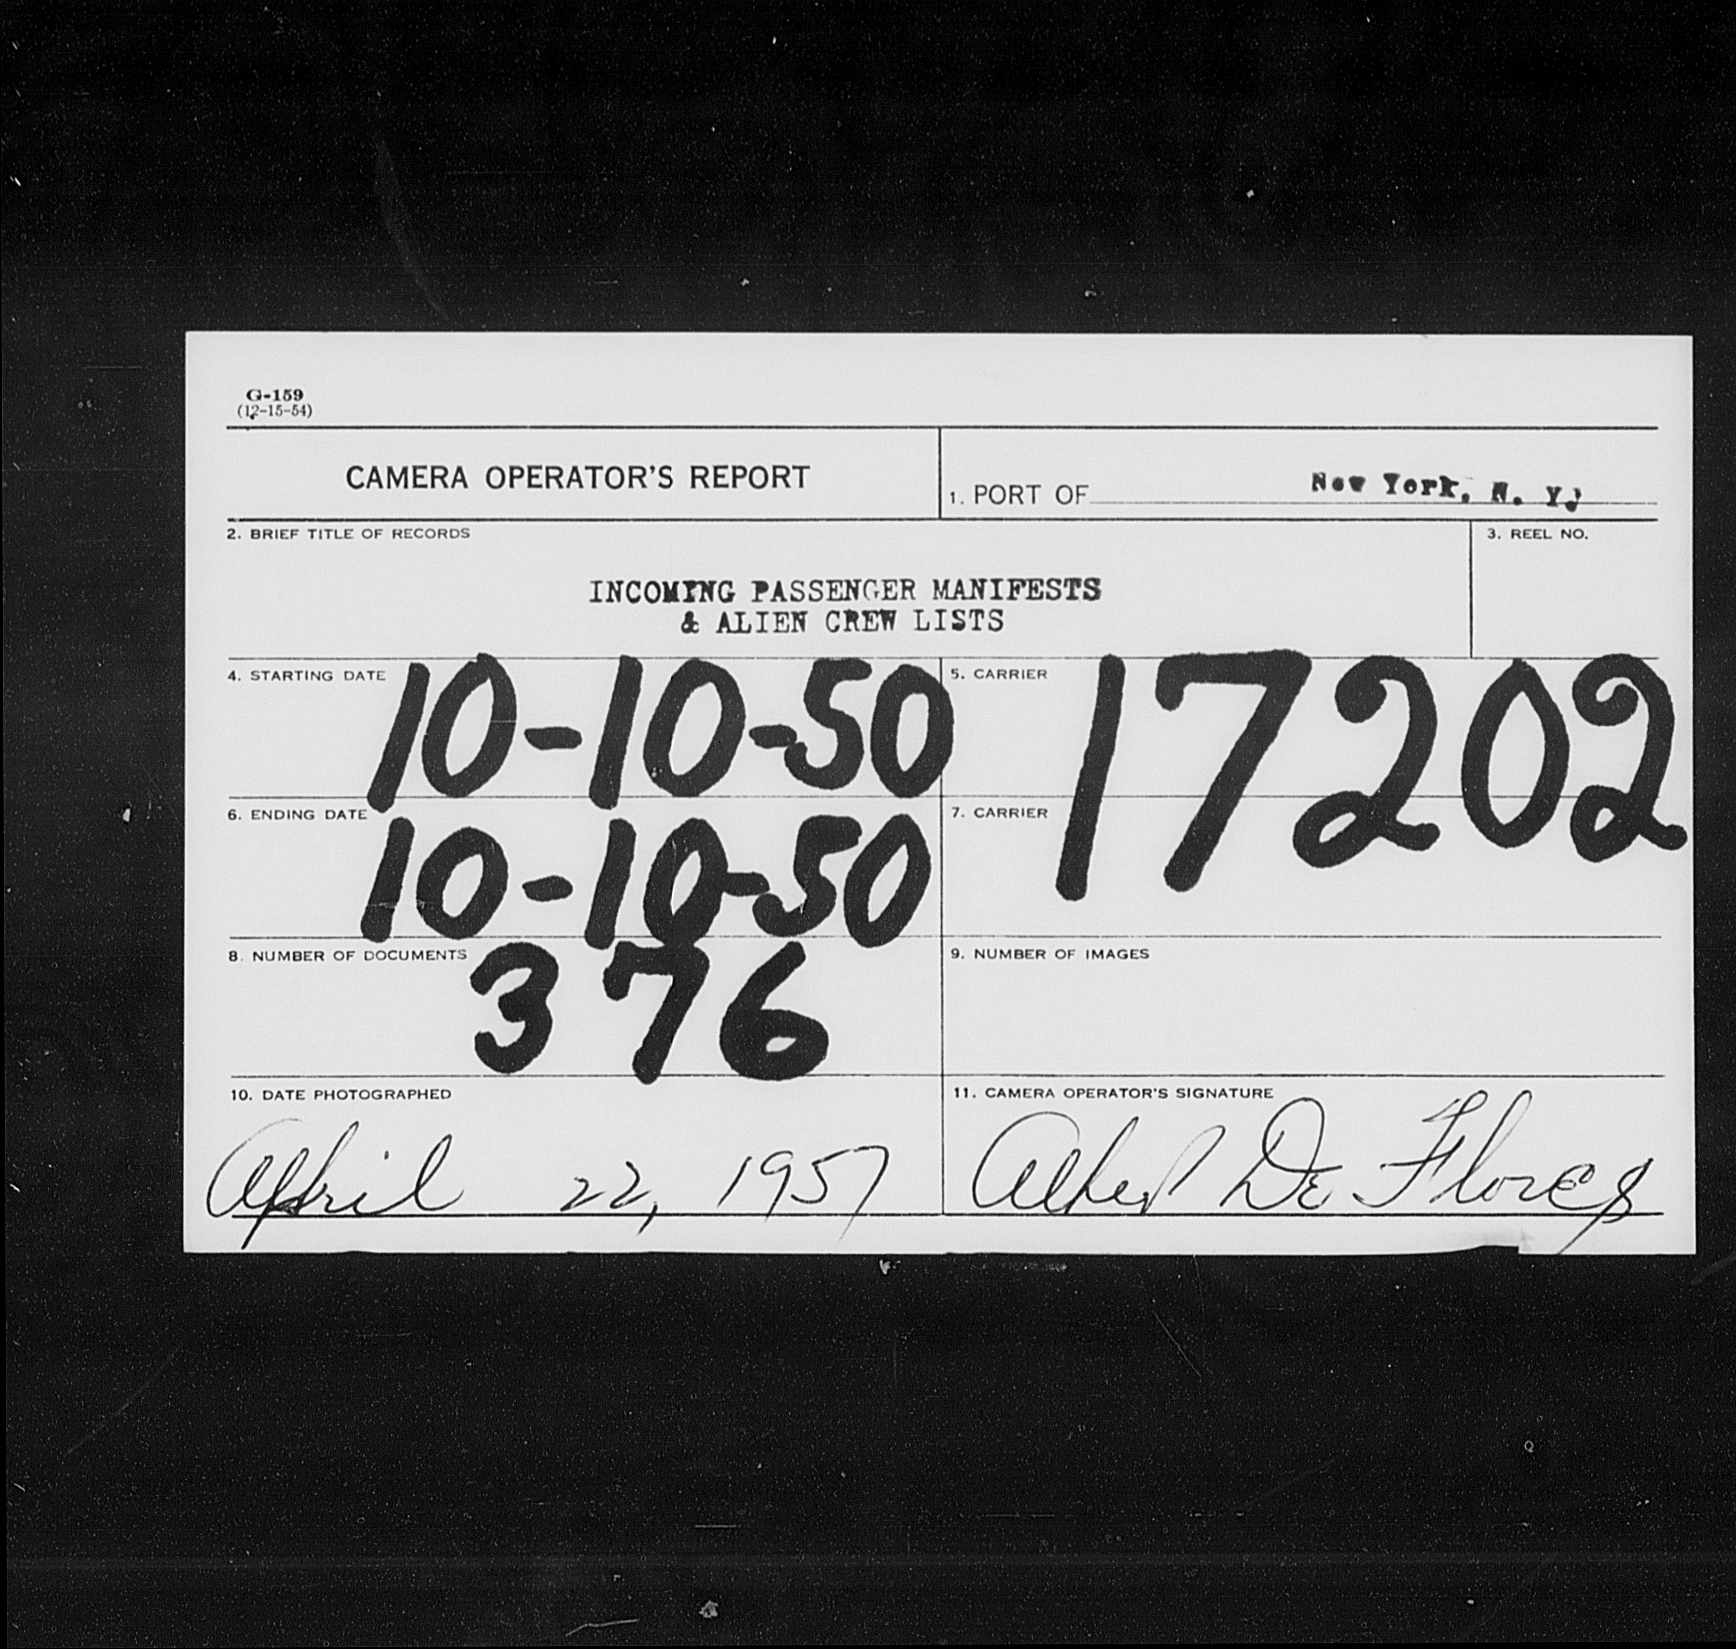 G-159
(12-15-54)
CAMERA OPERATOR'S REPORT
1. PORT OF New York, N. Y.
2. BRIEF TITLE OF RECORDS
3. REEL NO.
INCOMING PASSENGER MANIFESTS
& ALIEN CREW LISTS
4. STARTING DATE 10-10-50
5. CARRIER 17202
6. ENDING DATE 10-10-50
7. CARRIER
8. NUMBER OF DOCUMENTS 376
9. NUMBER OF IMAGES
10. DATE PHOTOGRAPHED
April 22, 1957
11. CAMERA OPERATOR'S SIGNATURE
De Flores